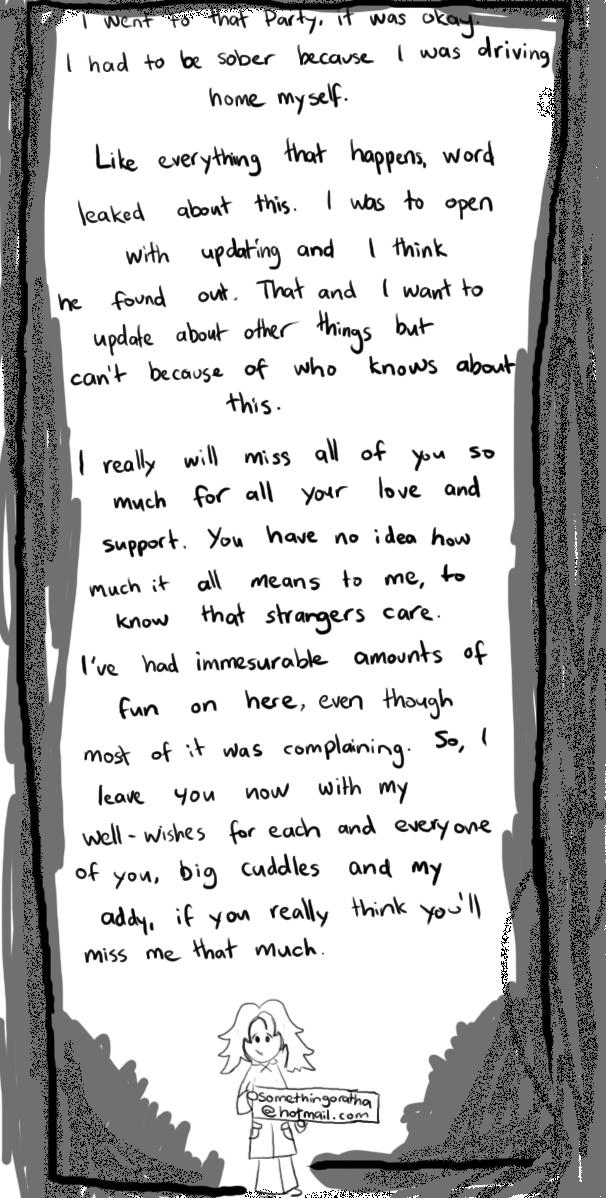 I went to that Party, it was okay.
I had to be sober because I was driving
home myself.
Like everything that happens, word
leaked about this. I was to open
with updating and I think
he found out. That and I want to
update about other things but
can't because of who knows about
this.
I really will miss all of you so
much for all your love and
support. You have no idea how
much it all means to me, to
know that strangers care.
I've had immesurable amounts of
fun on here, even though
most of it was complaining. So, I
leave you now with my
well-wishes for each and everyone
of you, big cuddles and my
addy, if you really think you'll
miss me that much.
somethingoratha
@hotmail.com